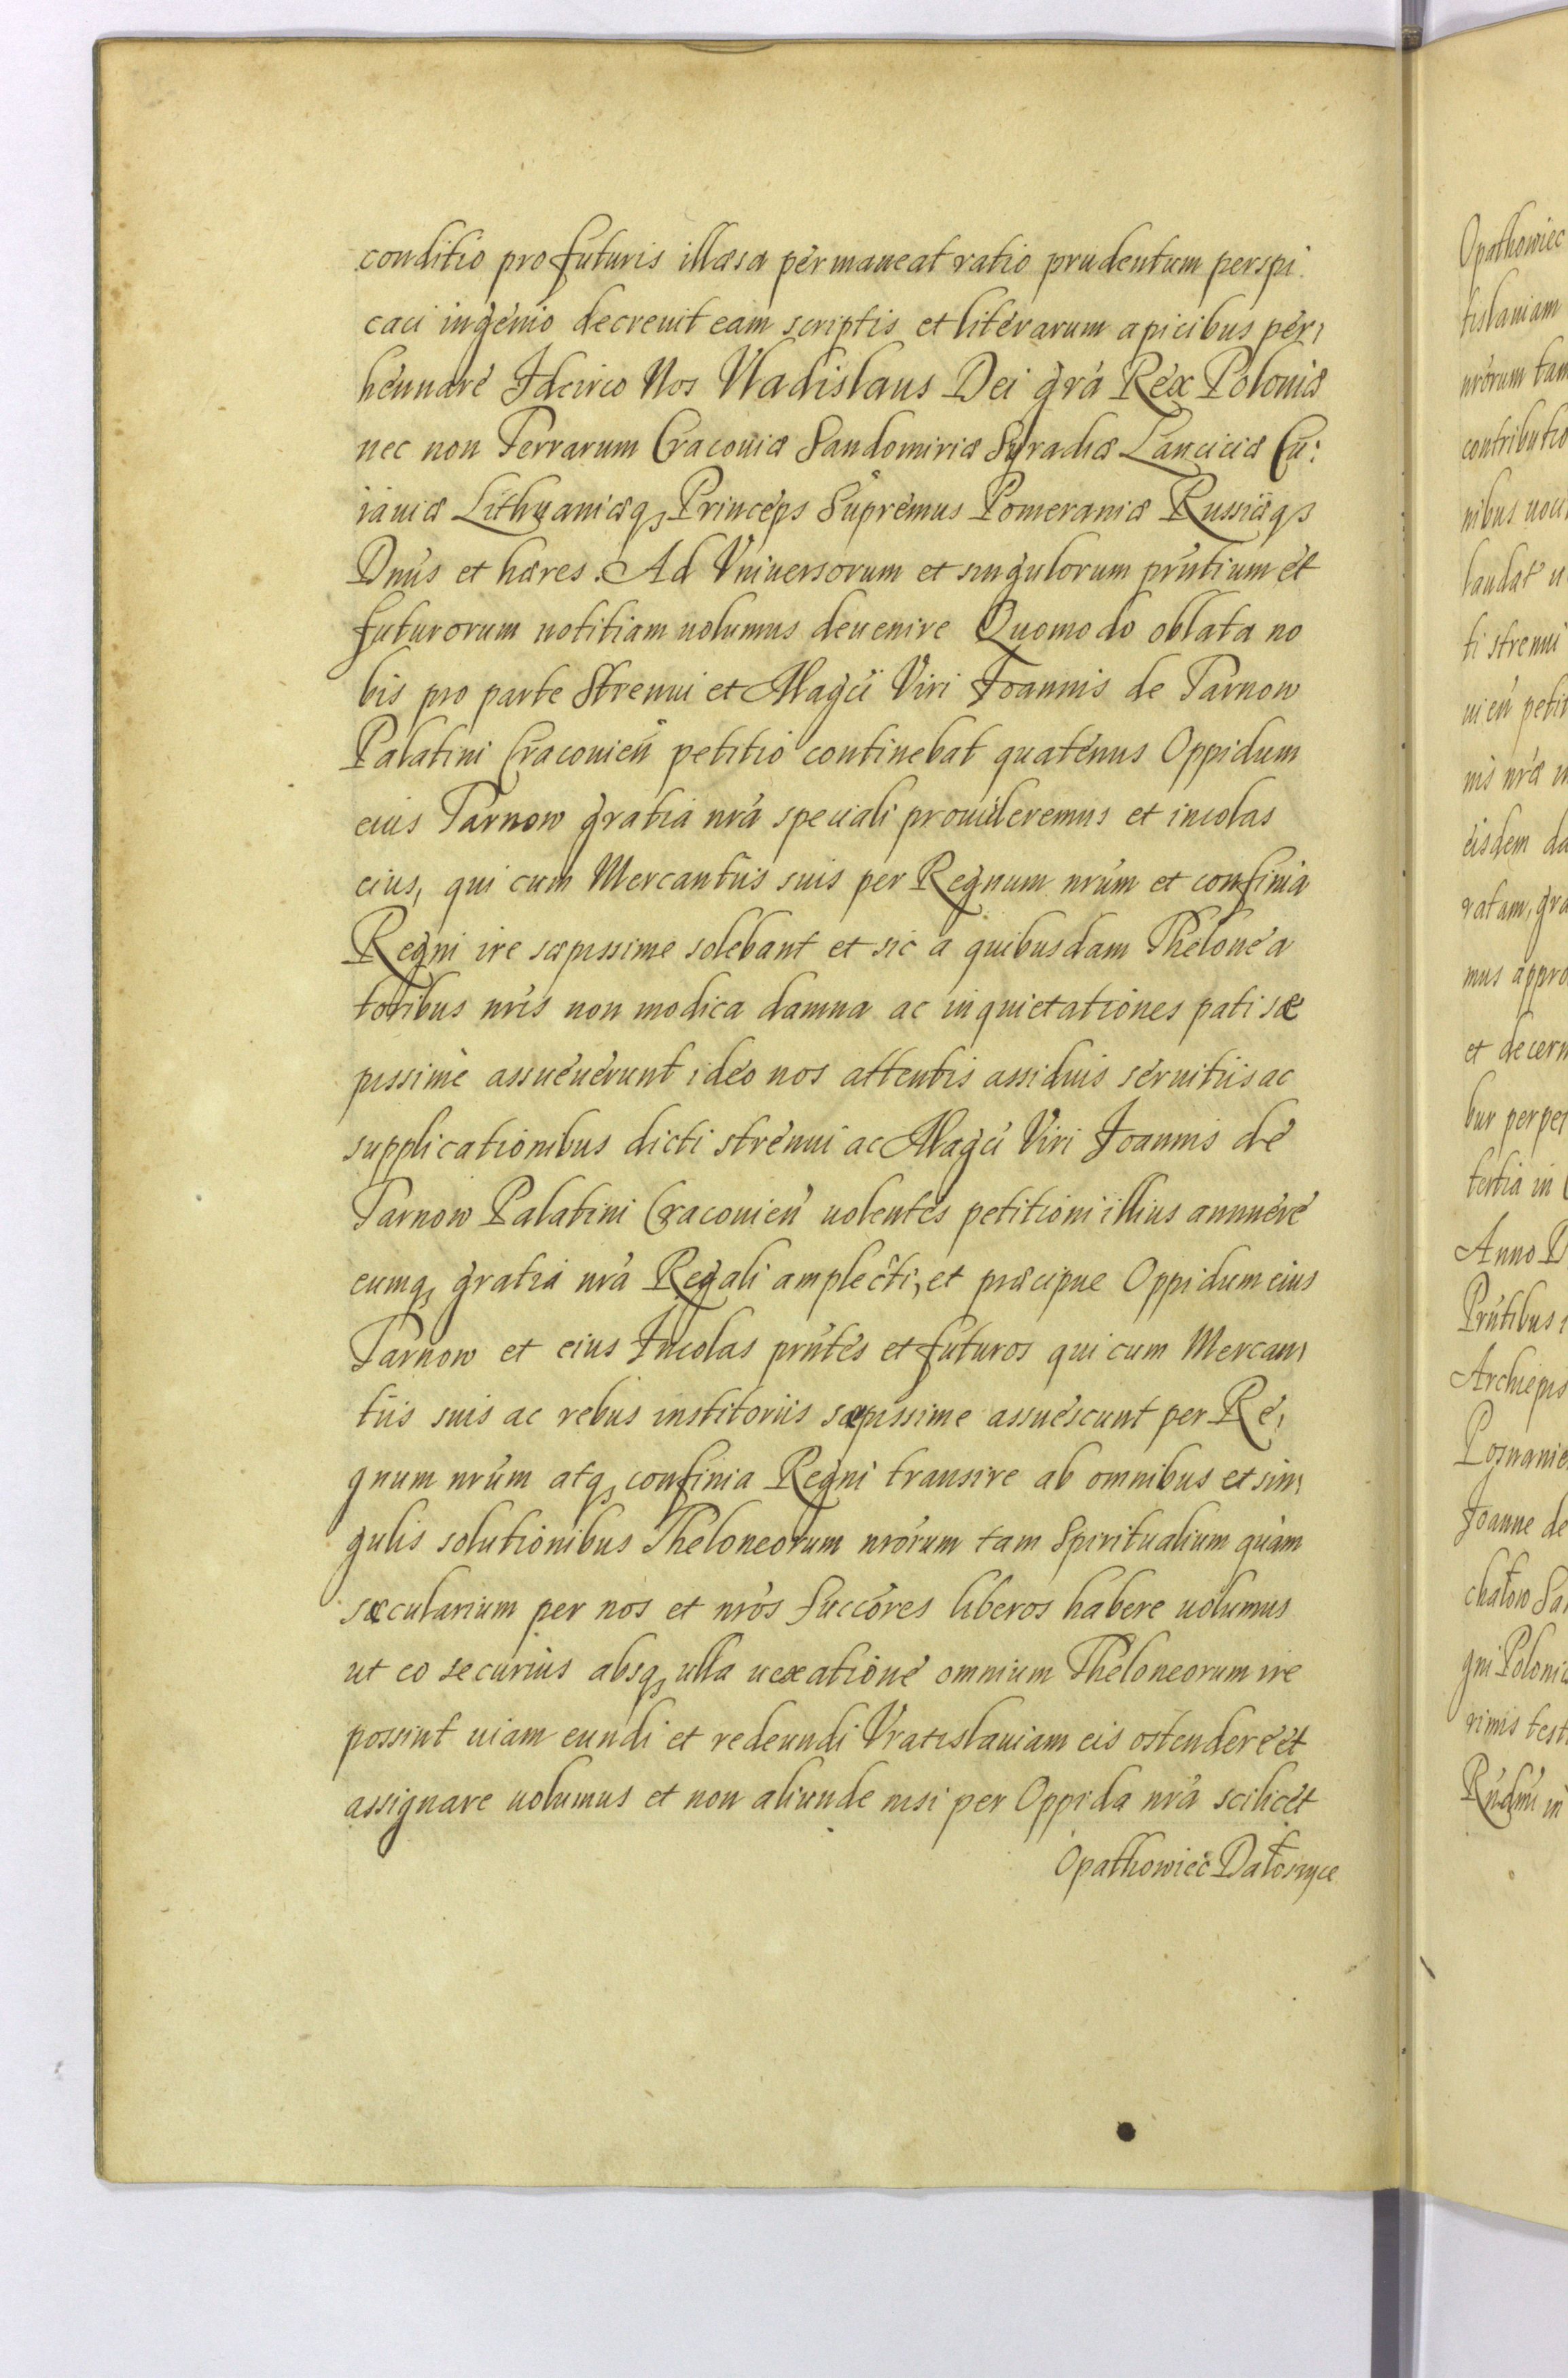 conditio pro futuris illæsa permaneat ratio prudentum perspi
caci ingenio decreuit eam scriptis et literarum apicibus per,
hennare Idcirco Nos Vladislaus Dei grá Rex Poloniæ
nec non Terrarum Cracouiæ Sandomiriæ Syradiæ Lanciciæ Cu:
iauiæ Lithuaniæq, Princeps Supremus Pomeraniæ Russiæq,
Dnús et hæres. Ad Vniuersorum et singulorum prńtium et
futurorum notitiam uolumus deuenire Quomodo oblata no
bis pro parte Strenui et Magcí Viri Joannis de Tarnow
Palatini Cracouień petitio continebat quatenus Oppidum
eius Tarnow gratia nrá speciali prouideremus et incolas
eius, qui cum Mercantiis suis per Regnum nrúm et confinia
Regni ire sæpissime solebant et sic a quibusdam Thelonea
toribus nrís non modica damna ac inquietationes pati sæ
pissime assueuerunt ideo nos attentis assiduis seruitiis ac
supplicationibus dicti strenui ac Magcí Viri Joannis de
Tarnow Palatini Cracouień uolentes petitioni illius annuere
eumq, gratia nrá Regali amplecti, et præcipue Oppidum eius
Tarnow et eius Incolas prńtes et futuros qui cum Mercan,
tiis suis ac rebus institoriis sæpissime assuescunt per Re,
gnum nrúm atq, confinia Regni transire ab omnibus et sin,
gulis solutionibus Theloneorum nrórum tam Spiritualium quàm
sæcularium per nos et nrós Succóres liberos habere uolumus
ut eo securius absq, ulla uexatione omnium Theloneorum ire
possint uiam eundi et redeundi Vratislauiam eis ostendere et
assignare uolumus et non aliunde nisi per Oppida nrá scilicet
Opathowiec
Opathowiec
tislauiam
nrórum tam
contributio
nibus
laudat
ti strenui
uień petit
nis nrǽ
eisdem da
ratam, gra
mus appro
et decern
tur perpet
tertia in
Anno D
Prńtibus
Archiepis
Posnanie
Joanne de
gni Poloni
rimis test